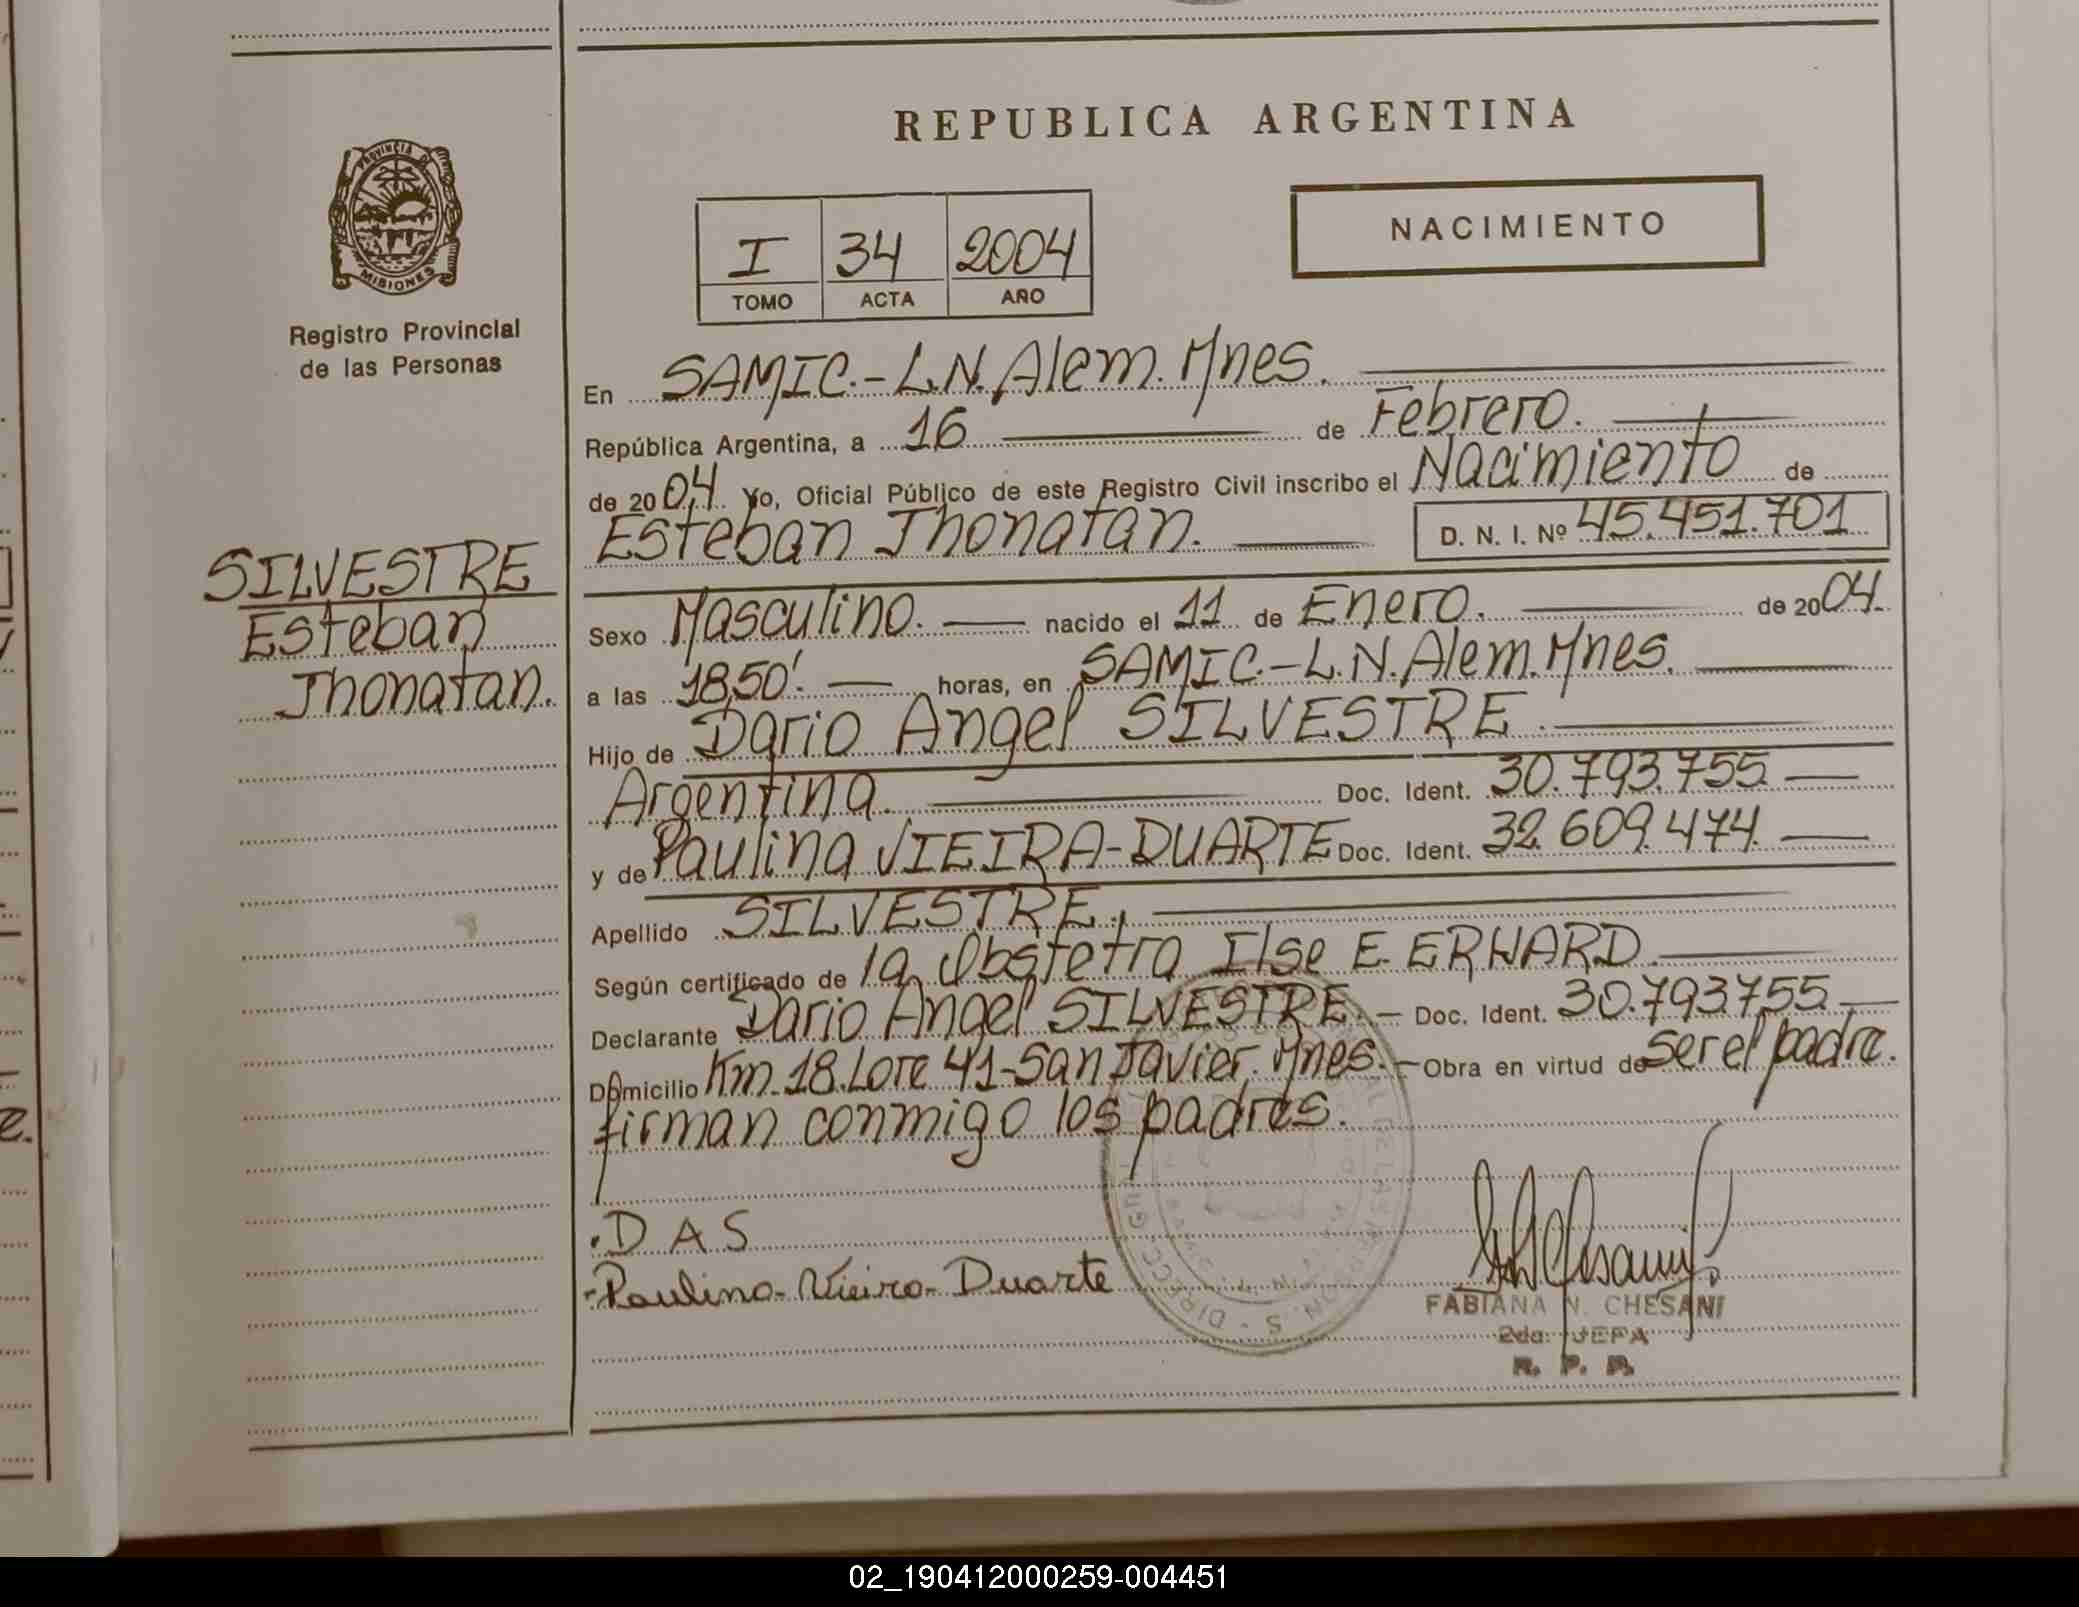 REPUBLICA ARGENTINA
PROVINCIA DE MISIONES
Registro Provincial
de las Personas
I 34 2004
TOMO ACTA AÑO
NACIMIENTO
SILVESTRE
Esteban
Jhonatan.
En SAMIC.-L.N.Alem.Mnes.
República Argentina, a 16 de Febrero.
de 2004. Yo, Oficial Público de este Registro Civil inscribo el Nacimiento de
Esteban Jhonatan. D. N. I. Nº 45.451.701
Sexo Masculino. nacido el 11 de Enero. de 2004.
a las 18,50'. horas, en SAMIC.-L.N.Alem.Mnes.
Hijo de Dario Angel SILVESTRE.
Argentina. Doc. Ident. 30.793.755
y de Paulina VIEIRA-DUARTE Doc. Ident. 32.609.474.
Apellido SILVESTRE.
Según certificado de la Obstetra Ilse E. ERHARD.
Declarante Dario Angel SILVESTRE.- Doc. Ident. 30.793.755.
Domicilio Km.18.Lote 41-San Javier.Mnes.- Obra en virtud de ser el padre.
firman conmigo los padres.
.D A S
-Paulino-Vieiro-Duarte
FABIANA N. CHESANI
2da. JEFA
R. P. P.
02_190412000259-004451